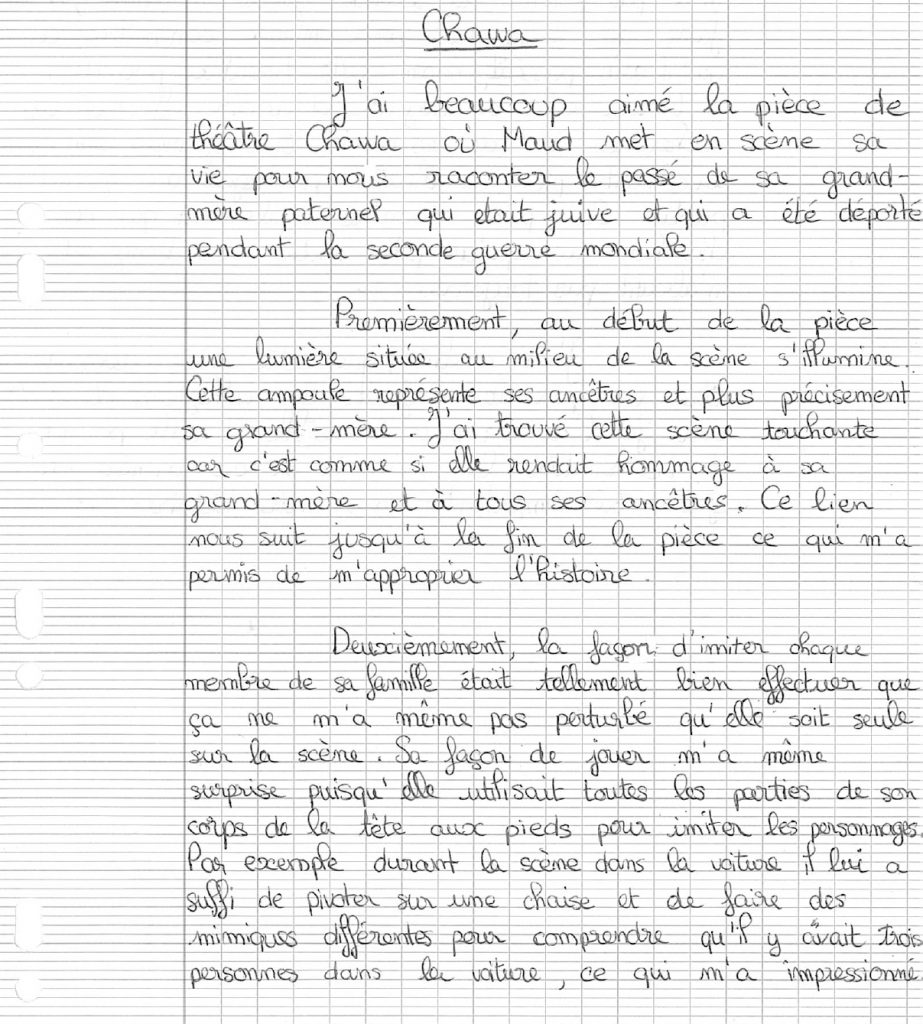 Chawa
J'ai beaucoup aimé la pièce de
théâtre Chawa où Maud met en scène sa
vie pour nous raconter le passé de sa grand-
mère paternel qui etait juive et qui a été déporté
pendant la seconde guerre mondiale.
Premièrement, au début de la pièce
une lumière située au milieu de la scène s'illumine.
Cette ampoule représente ses ancêtres et plus précisement
sa grand-mère. J'ai trouvé cette scène touchante
car c'est comme si elle rendait hommage à sa
grand-mère et à tous ses ancêtres. Ce lien
nous suit jusqu'à la fin de la pièce ce qui m'a
permis de m'approprier l'histoire.
Deuxièmement, la façon d'imiter chaque
membre de sa famille était tellement bien effectuer que
ça ne m'a même pas perturbé qu'elle soit seule
sur la scène. Sa façon de jouer m'a même
surprise puisqu'elle utilisait toutes les parties de son
corps de la tête aux pieds pour imiter les personnages.
Par exemple durant la scène dans la voiture il lui a
suffi de pivoter sur une chaise et de faire des
mimiques différentes pour comprendre qu'il y avait trois
personnes dans la voiture, ce qui m'a impressionné.